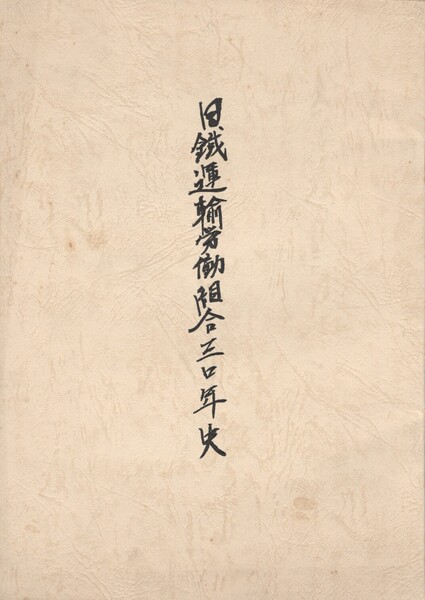 日鐵運輸労働組合三〇年史